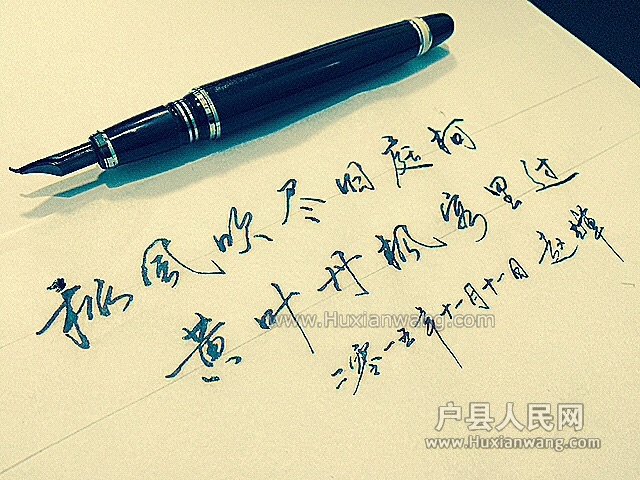 秋风吹尽旧庭柯
黄叶丹枫客里过
二零一五年十一月十一日
www.Huxianwang.com
户县人民网
www.Huxianwang.com